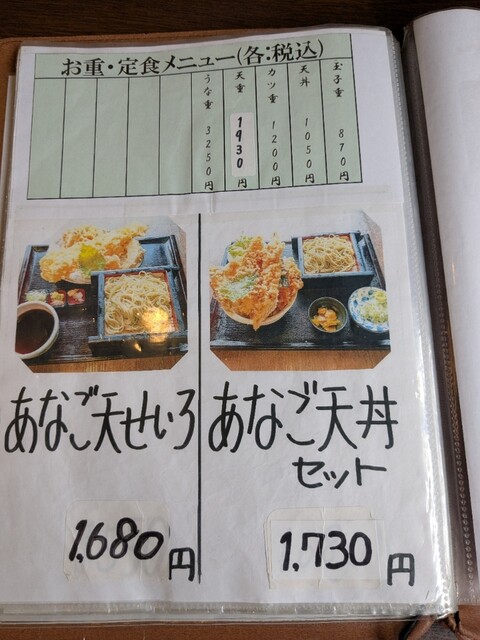 お重・定食メニュー(各:税込)
玉子重 870円
天丼 1050円
カツ重 1200円
天重 1930円
うな重 3250円
あなご天せいろ
1,680円
あなご天丼
セット
1,730円